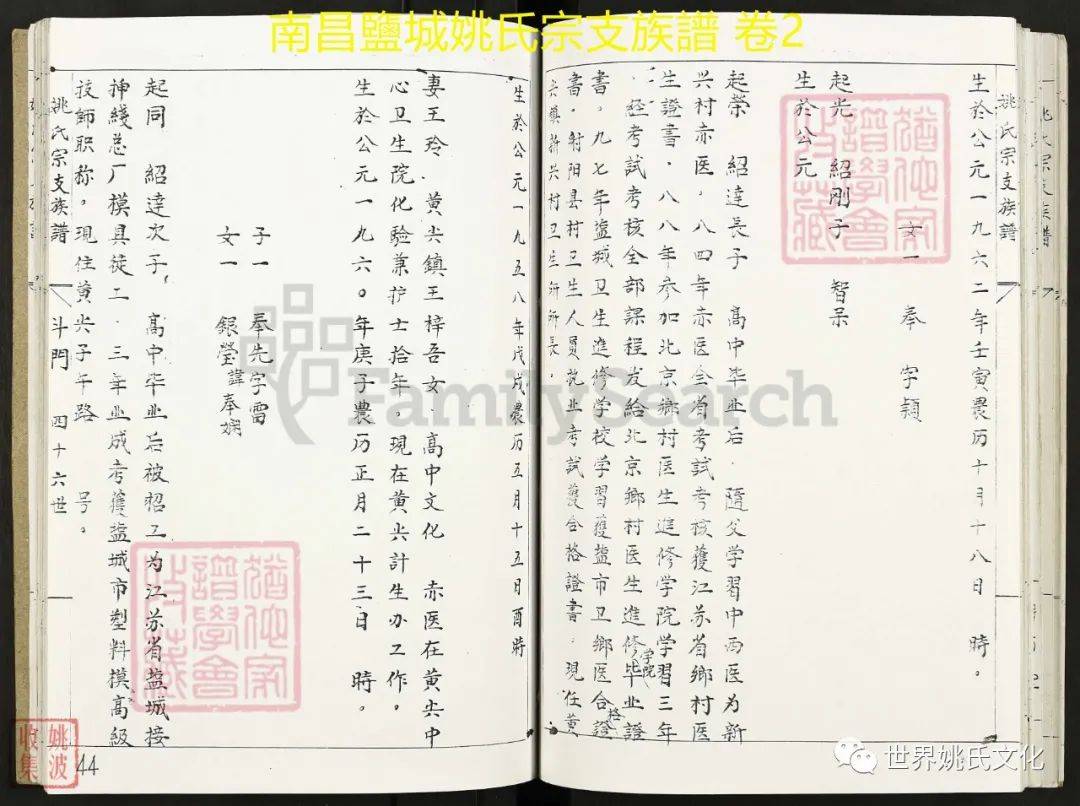 南昌鹽城姚氏宗支族譜 卷2
姚氏宗支族譜
生於公元一九六二年壬寅農历十月十八日 時。
女一 奉 字穎
起光 紹剛子 智呆
生於公元
起荣 紹達長子 高中毕业后.隨父学習中西医为新
兴村赤医.八四年赤医全省考試考核獲江苏省鄉村医
生證書.八八年参加北京鄉村医生進修学院学習三年
.经考試考核全部課程发給北京鄉村医生進修学院毕业證
書。九七年盐城卫生進修学校学習獲盐市卫鄉医合格證
書.射阳县村卫生人員从业考試獲合格證書.現任黄
尖鎮新兴村卫生所所長.
生於公元一九五八年戊戌農历五月十五日酉時
妻王玲 黄尖鎮王梓吾女.高中文化 赤医在黄尖中
心卫生院化驗兼护士拾年。現在黄尖計生办工作。
生於公元一九六〇年庚子農历正月二十三日 時。
子一 奉先字雷
女一 銀瑩諱奉娴
起同 紹達次子.高中毕业后被招工为江苏省盐城接
插綫总厂模具徒工.三年业成考獲盐城市塑料模高级
技師职称。現住黄尖子午路 号。
姚氏宗支族譜 斗門 四十六世
44
姚波
收集
FamilySearch
世界姚氏文化